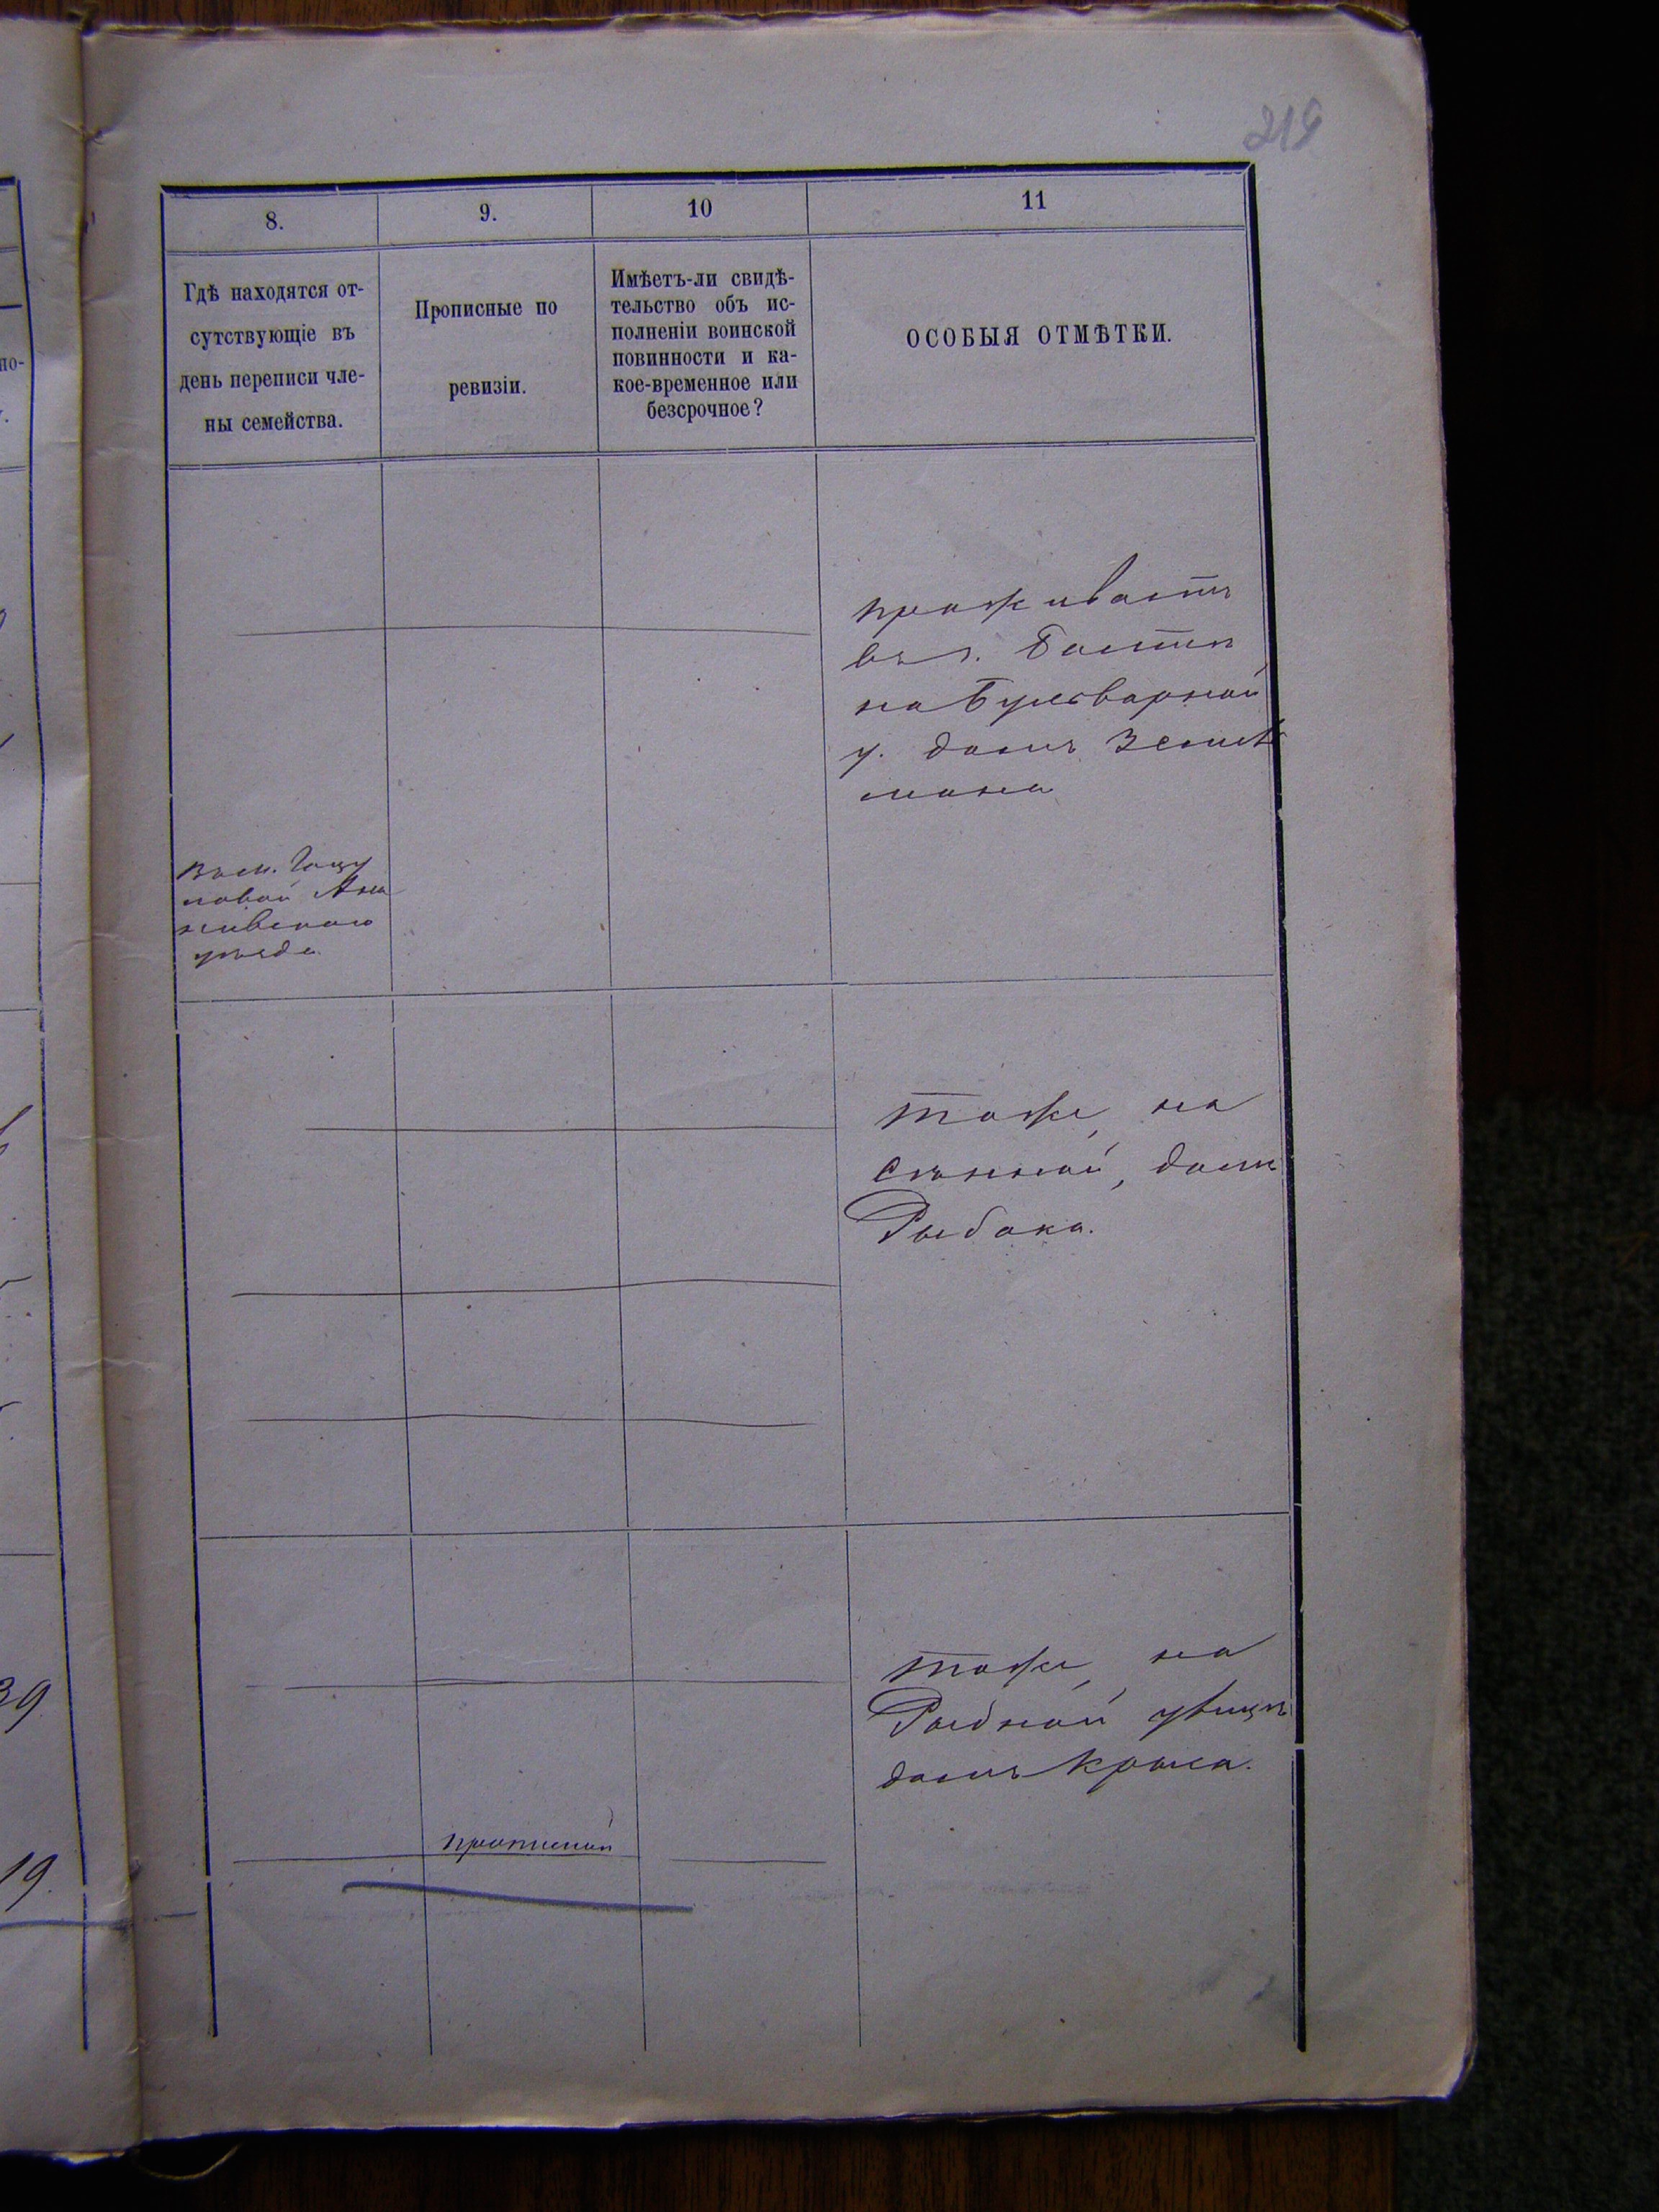 219
8.
9.
10
11
Гдѣ находятся от-
сутствующіе въ
день переписи чле-
ны семейства.
Прописные по
ревизіи.
Имѣетъ-ли свидѣ-
тельство объ ис-
полненіи воинской
повинности и ка-
кое-временное или
безсрочное?
ОСОБЫЯ ОТМѢТКИ.
проживаетъ
въ г. Балтѣ
на Бульварной
у. домъ
мана
Въ м.
новой Ана
ньевскаго
уѣзда
тоже, на
Сѣнной, домъ
Рыбака.
тоже, на
Рыбной улицѣ
домъ
прописной
по-
39
19.